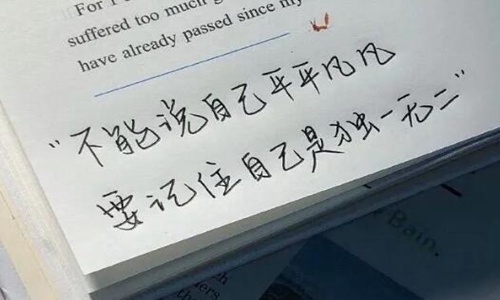 For I
suffered too much g
have already passed since my
"不能说自己平平凡凡
要记住自己是独一无二"
Bain.